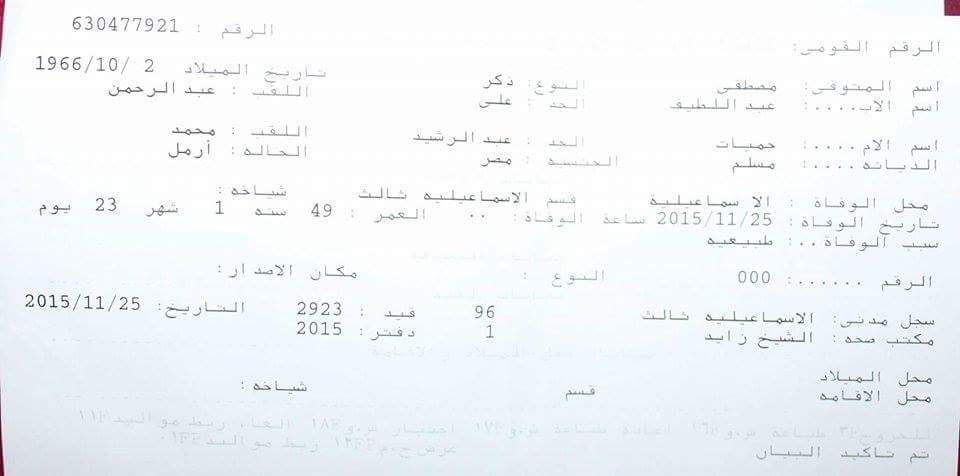 الرقم : 630477921
الرقم القومى:
اسم المتوفى: مصطفى النوع: ذكر تاريخ الميلاد 2 /1966/10
اسم الاب....: عبد اللطيف الجد : على اللقب : عبد الرحمن
اسم الام ....: حميات الجد : عبد الرشيد اللقب : محمد
الديانه ....: مسلم الجنسيه : مصر الحاله : أرمل
محل الوفاة : الا سماعيلية قسم الاسماعيليه ثالث شياخه :
تاريخ الوفاة : 2015/11/25 ساعة الوفاة: .. العمر : 49 سنه 1 شهر 23 يوم
سبب الوفاة ..: طبيعيه
الرقم .......: 000 النوع : مكان الاصدار:
سجل مدنى: الاسماعيليه ثالث 96 قيد : 2923 التاريخ: 2015/11/25
مكتب صحه : الشيخ زايد 1 دفتر: 2015
محل الميلاد
محل الاقامه قسم شياخه :
للخروج F3 طباعة ش.و F16 اعادة طباعة ش.و F17 اختيار ش.و F18 الغاء ربط مواليد F11
تم تاكيد البيان